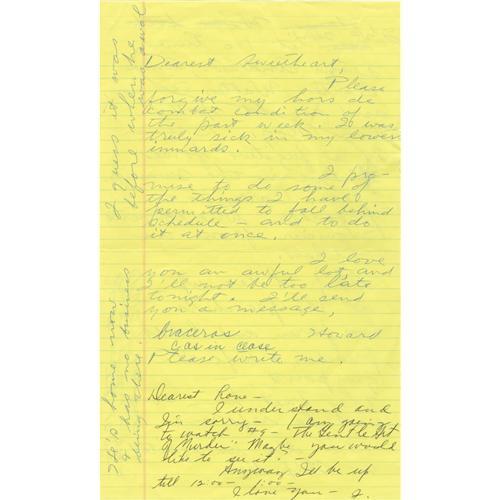 Dearest Sweetheart,
Please
forgive my hors de
combat condition of
the past week. It was
truly sick in my lower
innards.
I pro-
mise to do some of
the things I have
permitted to fall behind
schedule - and to do
it at once.
I love
you an awful lot, and
I'll not be too late
tonight. I'll send
you a message,
Howard
braceros
as in close
Please write me.
Dearest
I understand and
I'm sorry - I am going
to watch #9 - "The Gentle Art
of Murder" Maybe you would
like to see it? -
Anyway I'll be up
till 12:00 - 1:00 -
I love you - J.
I guess it was
before when he
was awol
He's home now
& has no business
being there.